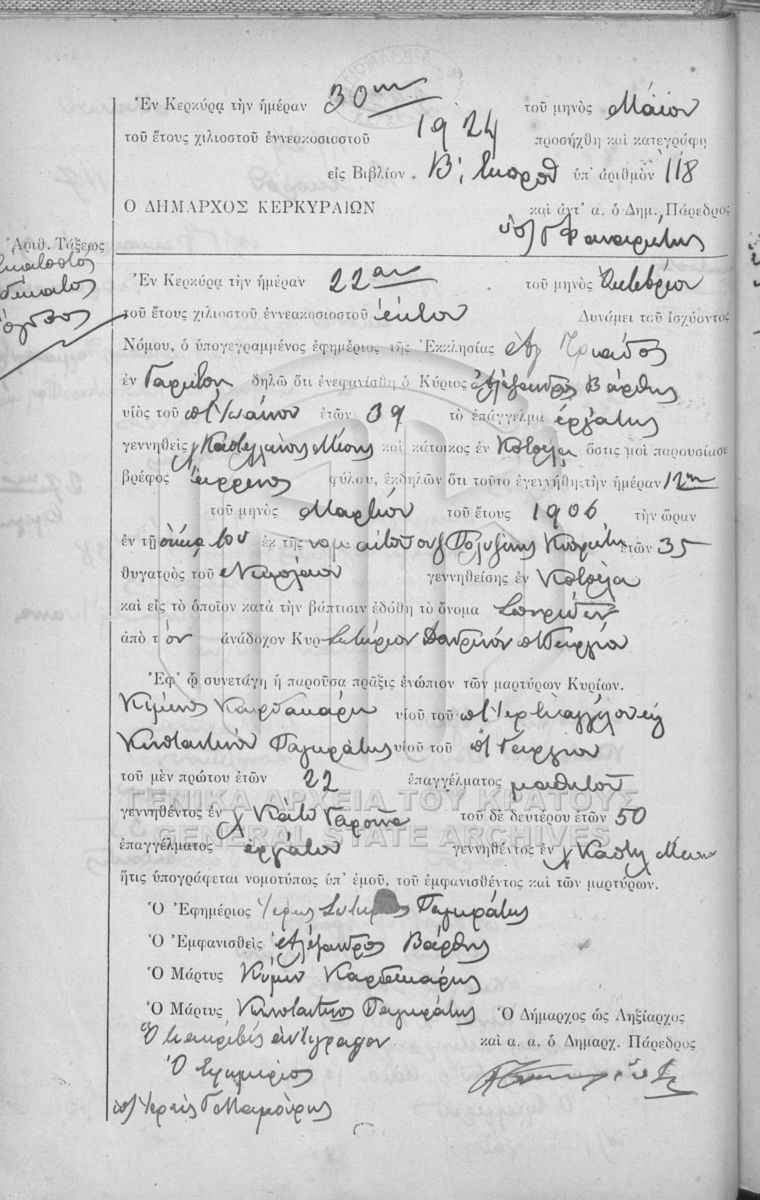 Ἐν Κερκύρᾳ τὴν ἡμέραν 30ην τοῦ μηνὸς Μαΐου
τοῦ ἔτους χιλιοστοῦ ἐννεακοσιοστοῦ 1924 προσήχθη καὶ κατεγράφη
εἰς Βιβλίον Β; ὑπ' ἀριθμὸν 118
Ο ΔΗΜΑΡΧΟΣ ΚΕΡΚΥΡΑΙΩΝ καὶ ἀντ' α. ὁ Δημ. Πάρεδρος
Ἀριθ. Τάξεως
Ἑκατοστὸς
δέκατος
ὄγδοος
Ἐν Κερκύρᾳ τὴν ἡμέραν 22αν τοῦ μηνὸς Ὀκτωβρίου
τοῦ ἔτους χιλιοστοῦ ἐννεακοσιοστοῦ ἕκτου Δυνάμει τοῦ ἰσχύοντος
Νόμου, ὁ ὑπογεγραμμένος ἐφημέριος τῆς Ἐκκλησίας Ἁγ Τριάδος
ἐν δηλῶ ὅτι ἐνεφανίσθη ὁ Κύριος Ἀλέξανδρος Βάρθης
υἱὸς τοῦ π Ἰωάννου ἐτῶν 39 τὸ ἐπάγγελμα ἐργάτης
γεννηθεὶς Καστελλάνους Μέσης καὶ κάτοικος ἐν ὅστις μοὶ παρουσίασε
βρέφος ἄρρενος φύλου, ἐκδηλῶν ὅτι τοῦτο ἐγεννήθη τὴν ἡμέραν 12ην
τοῦ μηνὸς Μαρτίου τοῦ ἔτους 1906 τὴν ὥραν
ἐν τῇ οἰκίᾳ του ἐκ τῆς νομ αὐτοῦ συζ Πολυξένης ἐτῶν 35
θυγατρὸς τοῦ Νικολάου γεννηθείσης ἐν
καὶ εἰς τὸ ὁποῖον κατὰ τὴν βάπτισιν ἐδόθη τὸ ὄνομα Σπυρίδων
ἀπὸ τὸν ἀνάδοχον Κυρ Σωτήριον π Γεωργίου
Ἐφ' ᾧ συνετάγη ἡ παροῦσα πρᾶξις ἐνώπιον τῶν μαρτύρων Κυρίων.
υἱοῦ τοῦ
Κωνσταντίνου Παγκράτης υἱοῦ τοῦ π Γεωργίου
τοῦ μὲν πρώτου ἐτῶν 22 ἐπαγγέλματος μαθητοῦ
ΓΕΝΙΚΑ ΑΡΧΕΙΑ ΤΟΥ ΚΡΑΤΟΥΣ
γεννηθέντος ἐν χ Κάτω Γαροῦνα τοῦ δὲ δευτέρου ἐτῶν 50
GENERAL STATE ARCHIVES
ἐπαγγέλματος ἐργάτου γεννηθέντος ἐν χ Καστελ Μέσης
ἥτις ὑπογράφεται νομοτύπως ὑπ' ἐμοῦ, τοῦ ἐμφανισθέντος καὶ τῶν μαρτύρων.
Ὁ Ἐφημέριος Ἱερεὺς Παγκράτης
Ὁ Ἐμφανισθεὶς Ἀλέξανδρος Βάρθης
Ὁ Μάρτυς
Ὁ Μάρτυς Κωνσταντῖνος Παγκράτης Ὁ Δήμαρχος ὡς Ληξίαρχος
Διὰ ἀκριβὲς ἀντίγραφον καὶ α. α. ὁ Δημαρχ. Πάρεδρος
Ὁ Ἐφημέριος